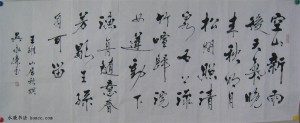 空山新雨
後天氣晚
来秋明月
松間照清
泉石上流
竹喧歸浣
女蓮動下
漁舟隨意春
芳歇王孫
自可留
王維山居秋暝